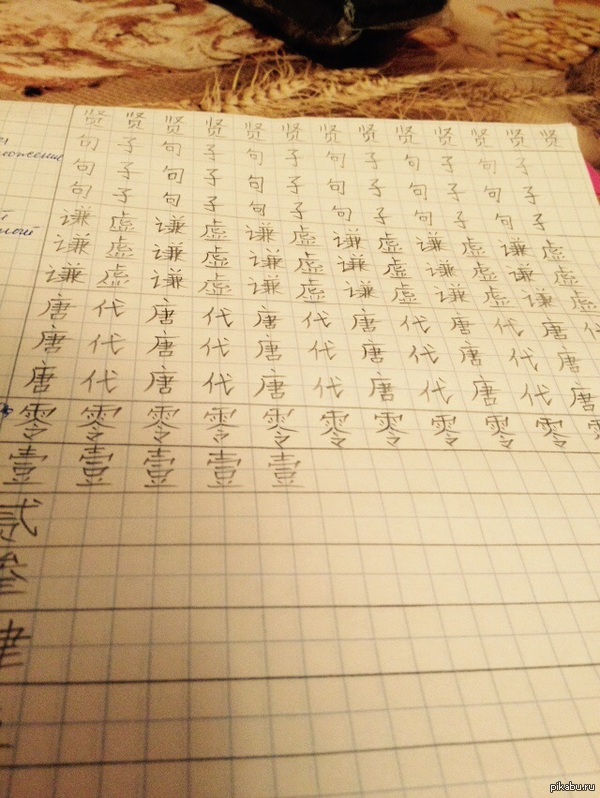 贤 贤 贤 贤 贤 贤 贤 贤 贤 贤 贤 贤 贤
句 子 句 子 句 子 句 子 句 子 句 子
句 子 句 子 句 子 句 子 句 子 句 子
句 子 句 子 句 子 句 子 句 子 句 子
谦 虚 谦 虚 谦 虚 谦 虚 谦 虚 谦 虚
谦 虚 谦 虚 谦 虚 谦 虚 谦 虚 谦 虚
谦 虚 谦 虚 谦 虚 谦 虚 谦 虚 谦 虚
唐 代 唐 代 唐 代 唐 代 唐 代 唐 代
唐 代 唐 代 唐 代 唐 代 唐 代 唐
唐 代 唐 代 唐 代 唐 代 唐 代 唐
零 零 零 零 零 零 零 零 零 零
壹 壹 壹 壹 壹
pikabu.ru